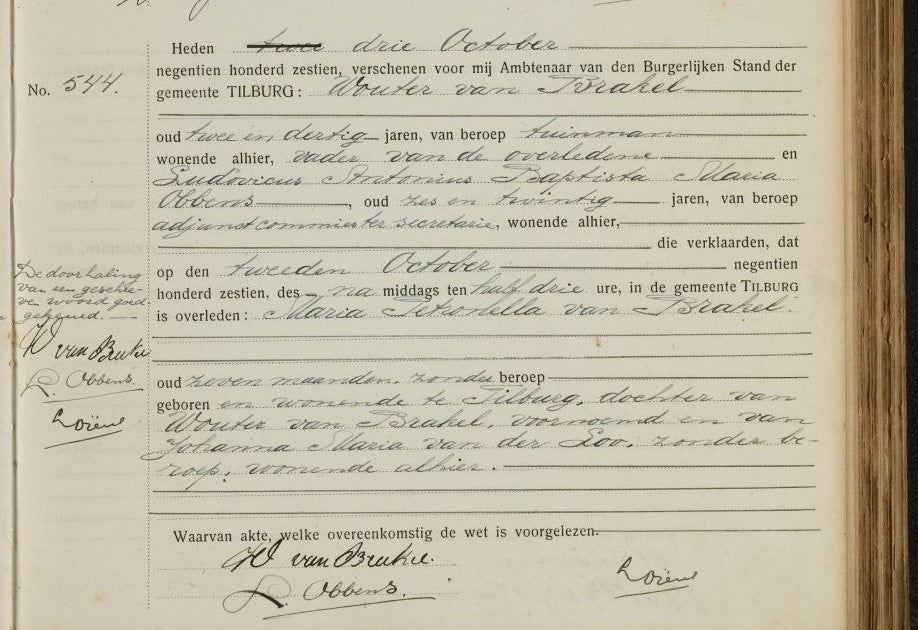 Heden twee drie October
negentien honderd zestien, verschenen voor mij Ambtenaar van den Burgerlijken Stand der
No. 544.
gemeente TILBURG: Wouter van Brakel
oud twee en dertig jaren, van beroep tuinman
wonende alhier, vader van de overledene en
Ludovicus Antonius Baptista Maria
Obbens, oud zes en twintig jaren, van beroep
adjunct commies ter secretarie, wonende alhier,
die verklaarden, dat
op den tweeden October negentien
honderd zestien, des na middags ten half drie ure, in de gemeente TILBURG
is overleden: Maria Petronella van Brakel.
De doorhaling
van een geschre-
ven woord goed-
gekeurd.
W van Brakel
L. Obbens.
oud zeven maanden, zonder beroep
geboren en wonende te Tilburg, dochter van
Wouter van Brakel, voornoemd en van
Johanna Maria van der Loo, zonder be-
roep, wonende alhier.
Waarvan akte, welke overeenkomstig de wet is voorgelezen.
W van Brakel.
L. Obbens.